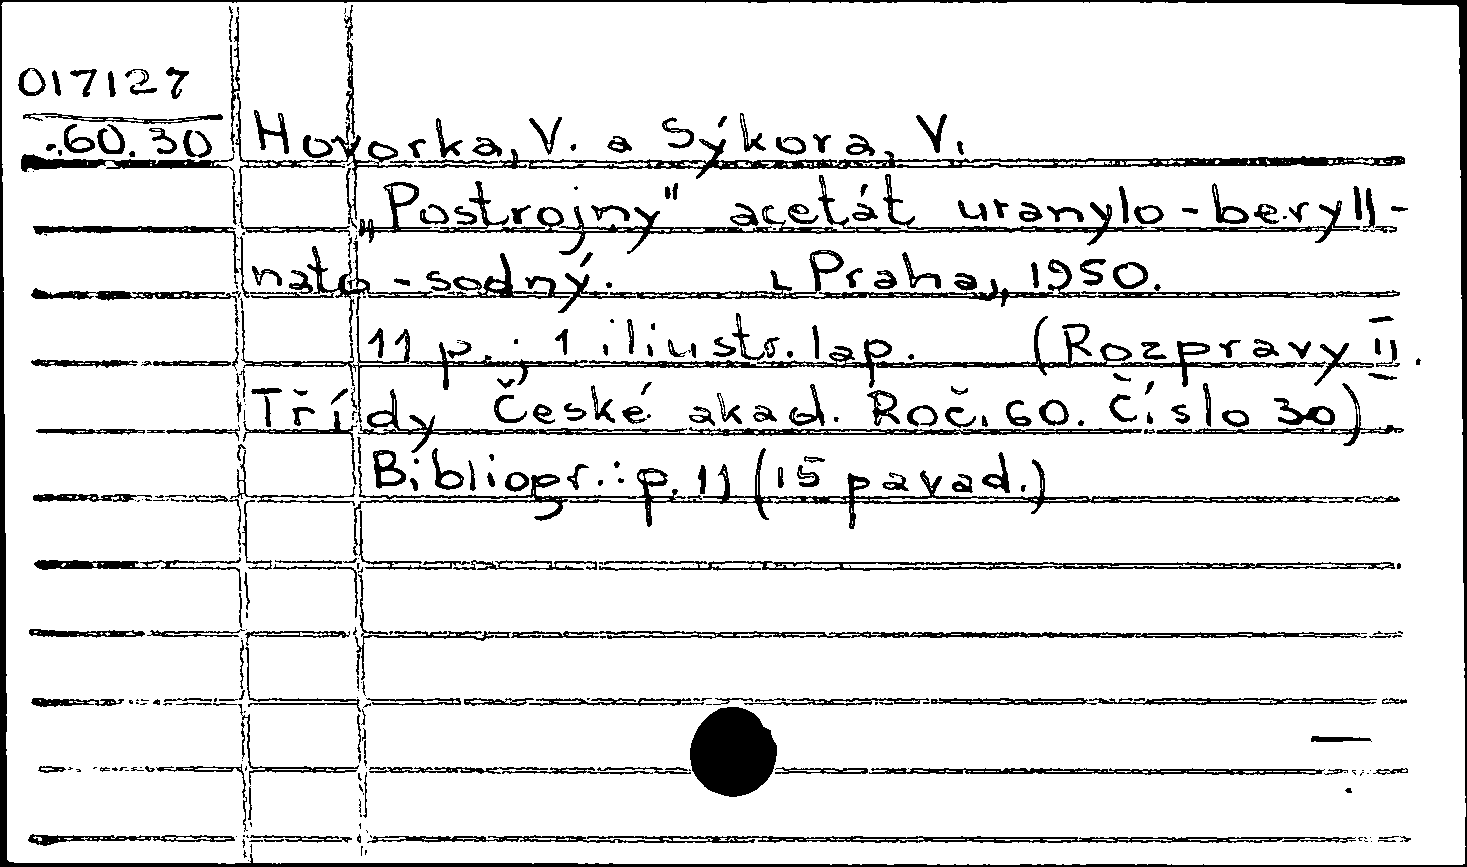 017127
60.30 Hovorka, V. a Sýkora, V.
„Postrojny" acetát uranylo-beryll-
nato-sodný. Praha, 1950.
11 p.; 1 iliustr. lap. (Rozpravy II.
Třídy České akad. Roč. 60. Číslo 30).
Bibliogr.: p. 11 (15 pavad.)